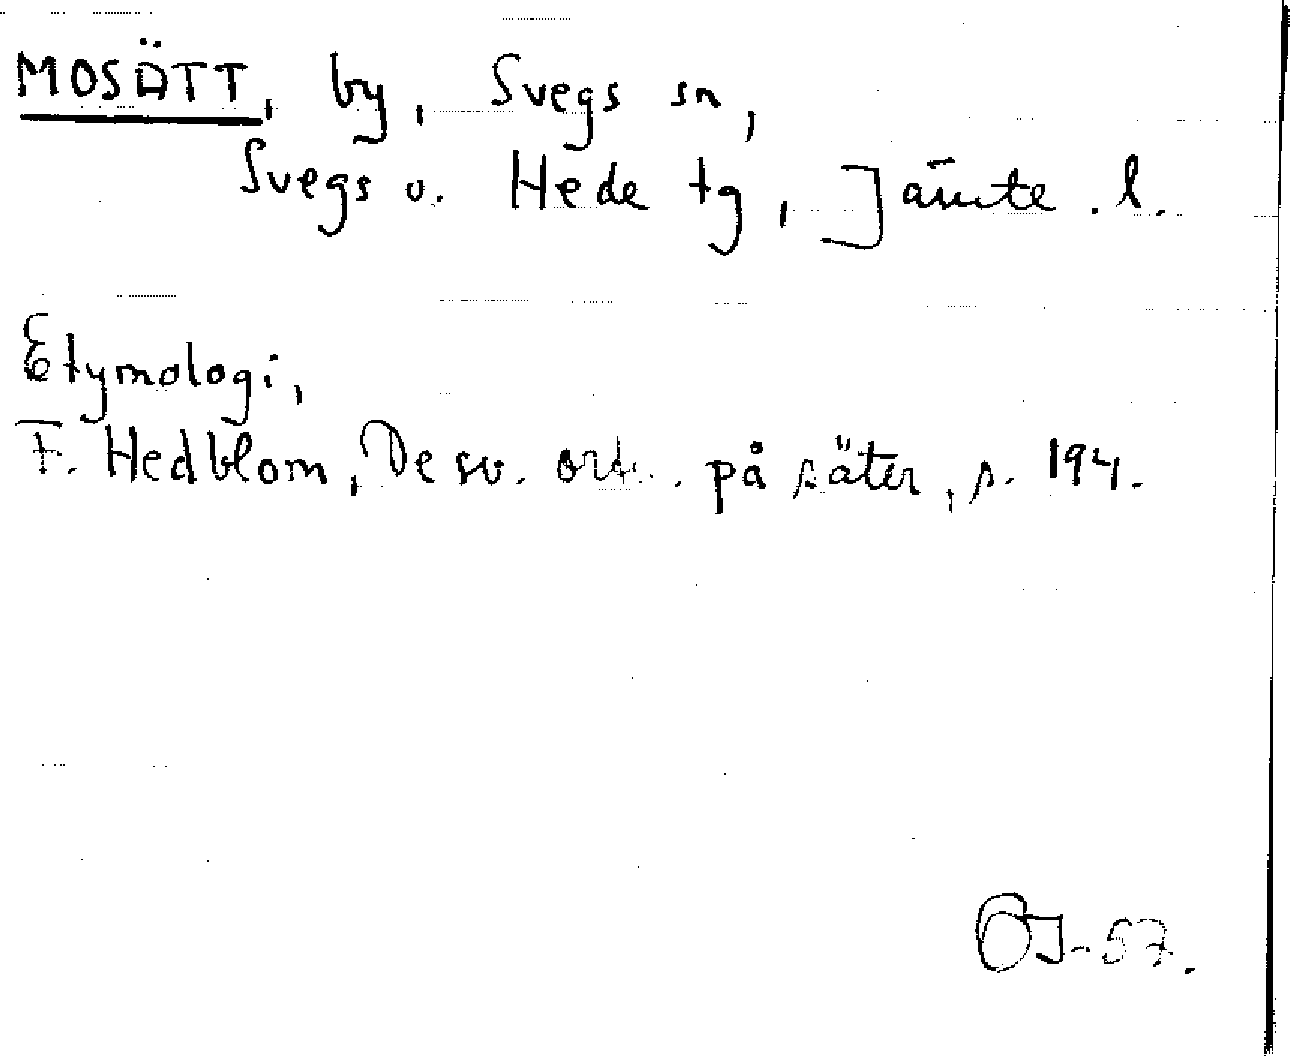 MOSÄTT, by, Svegs sn,
Svegs o. Hede tg, Jämte. l.
Etymologi,
F. Hedblom, De sv. ortn. på säter, s. 194.
OJ-57.